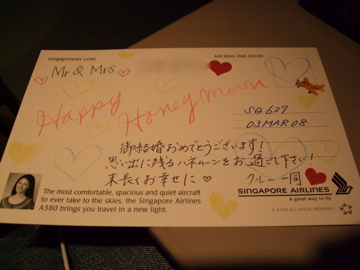 singaporeair.com
AIR MAIL PAR AVION
Mr & Mrs
Happy Honeymoon
SQ 627
03 MAR 08
御結婚おめでとうございます!
思い出に残るハネムーンをお過ごし下さい!
末長くお幸せに♡
クルー一同
The most comfortable, spacious and quiet aircraft
to ever take to the skies, the Singapore Airlines
A380 brings you travel in a new light.
SINGAPORE AIRLINES
A great way to fly
A STAR ALLIANCE MEMBER